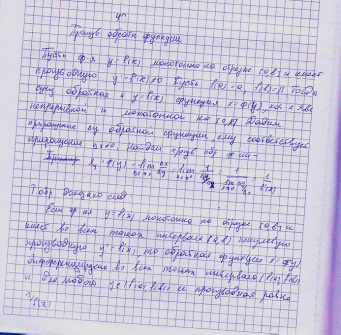 4°
Произв обратн функции
Пусть ф-я y=f(x) монотонна на отрезке [a,b] и имеет
производную y'=f'(x)≠0 Пусть f(a)=α, f(b)=β. Тогда
сущ обратная к y=f(x) функция x=φ(y),
непрерывной и монотонной на [α,β]. Дадим
приращение Δy обратной функции ему соответствует
приращение Δx≠0, найдем произв обр ф-ии
Т. обр доказано след
Если ф-ия y=f(x) монотонна на отрезке [a,b] и
имеет во всех точках интервала (a,b) ненулевую
производную y'=f'(x), то обратная функция x=φ(y)
дифференцируема во всех точках интервала (f(a), f(b))
и для любого y∈(f(a), f(b)) её производная равна